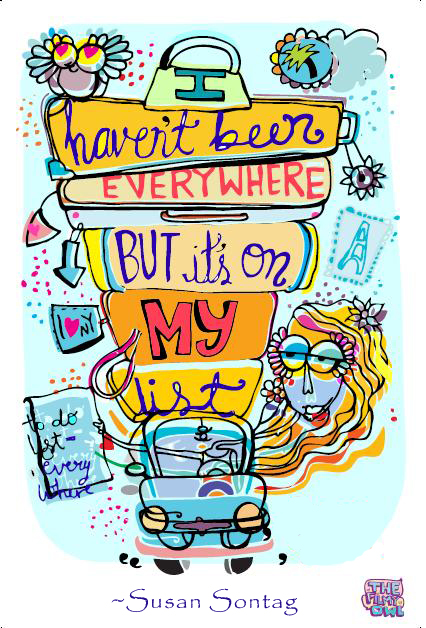 I
haven't been
EVERYWHERE
BUT it's on
MY
list
I ♥ NY
to do
list-
every
where
~Susan Sontag
THE
FILMY
OWL